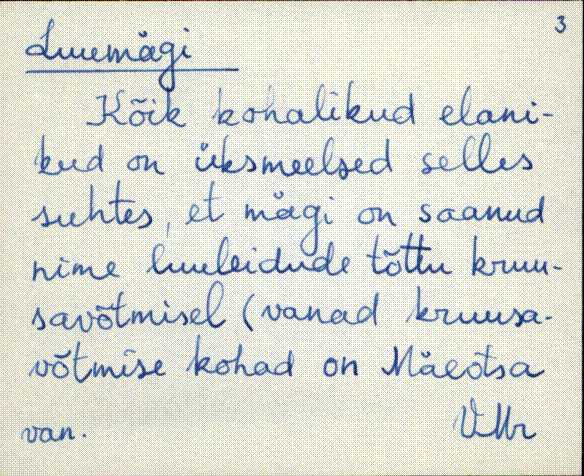 3
Luumägi
Kõik kohalikud elani-
kud on üksmeelsed selles
suhtes, et mägi on saanud
nime luuleidude tõttu kruu-
savõtmisel (vanad kruusa-
võtmise kohad on Mäeotsa
van.